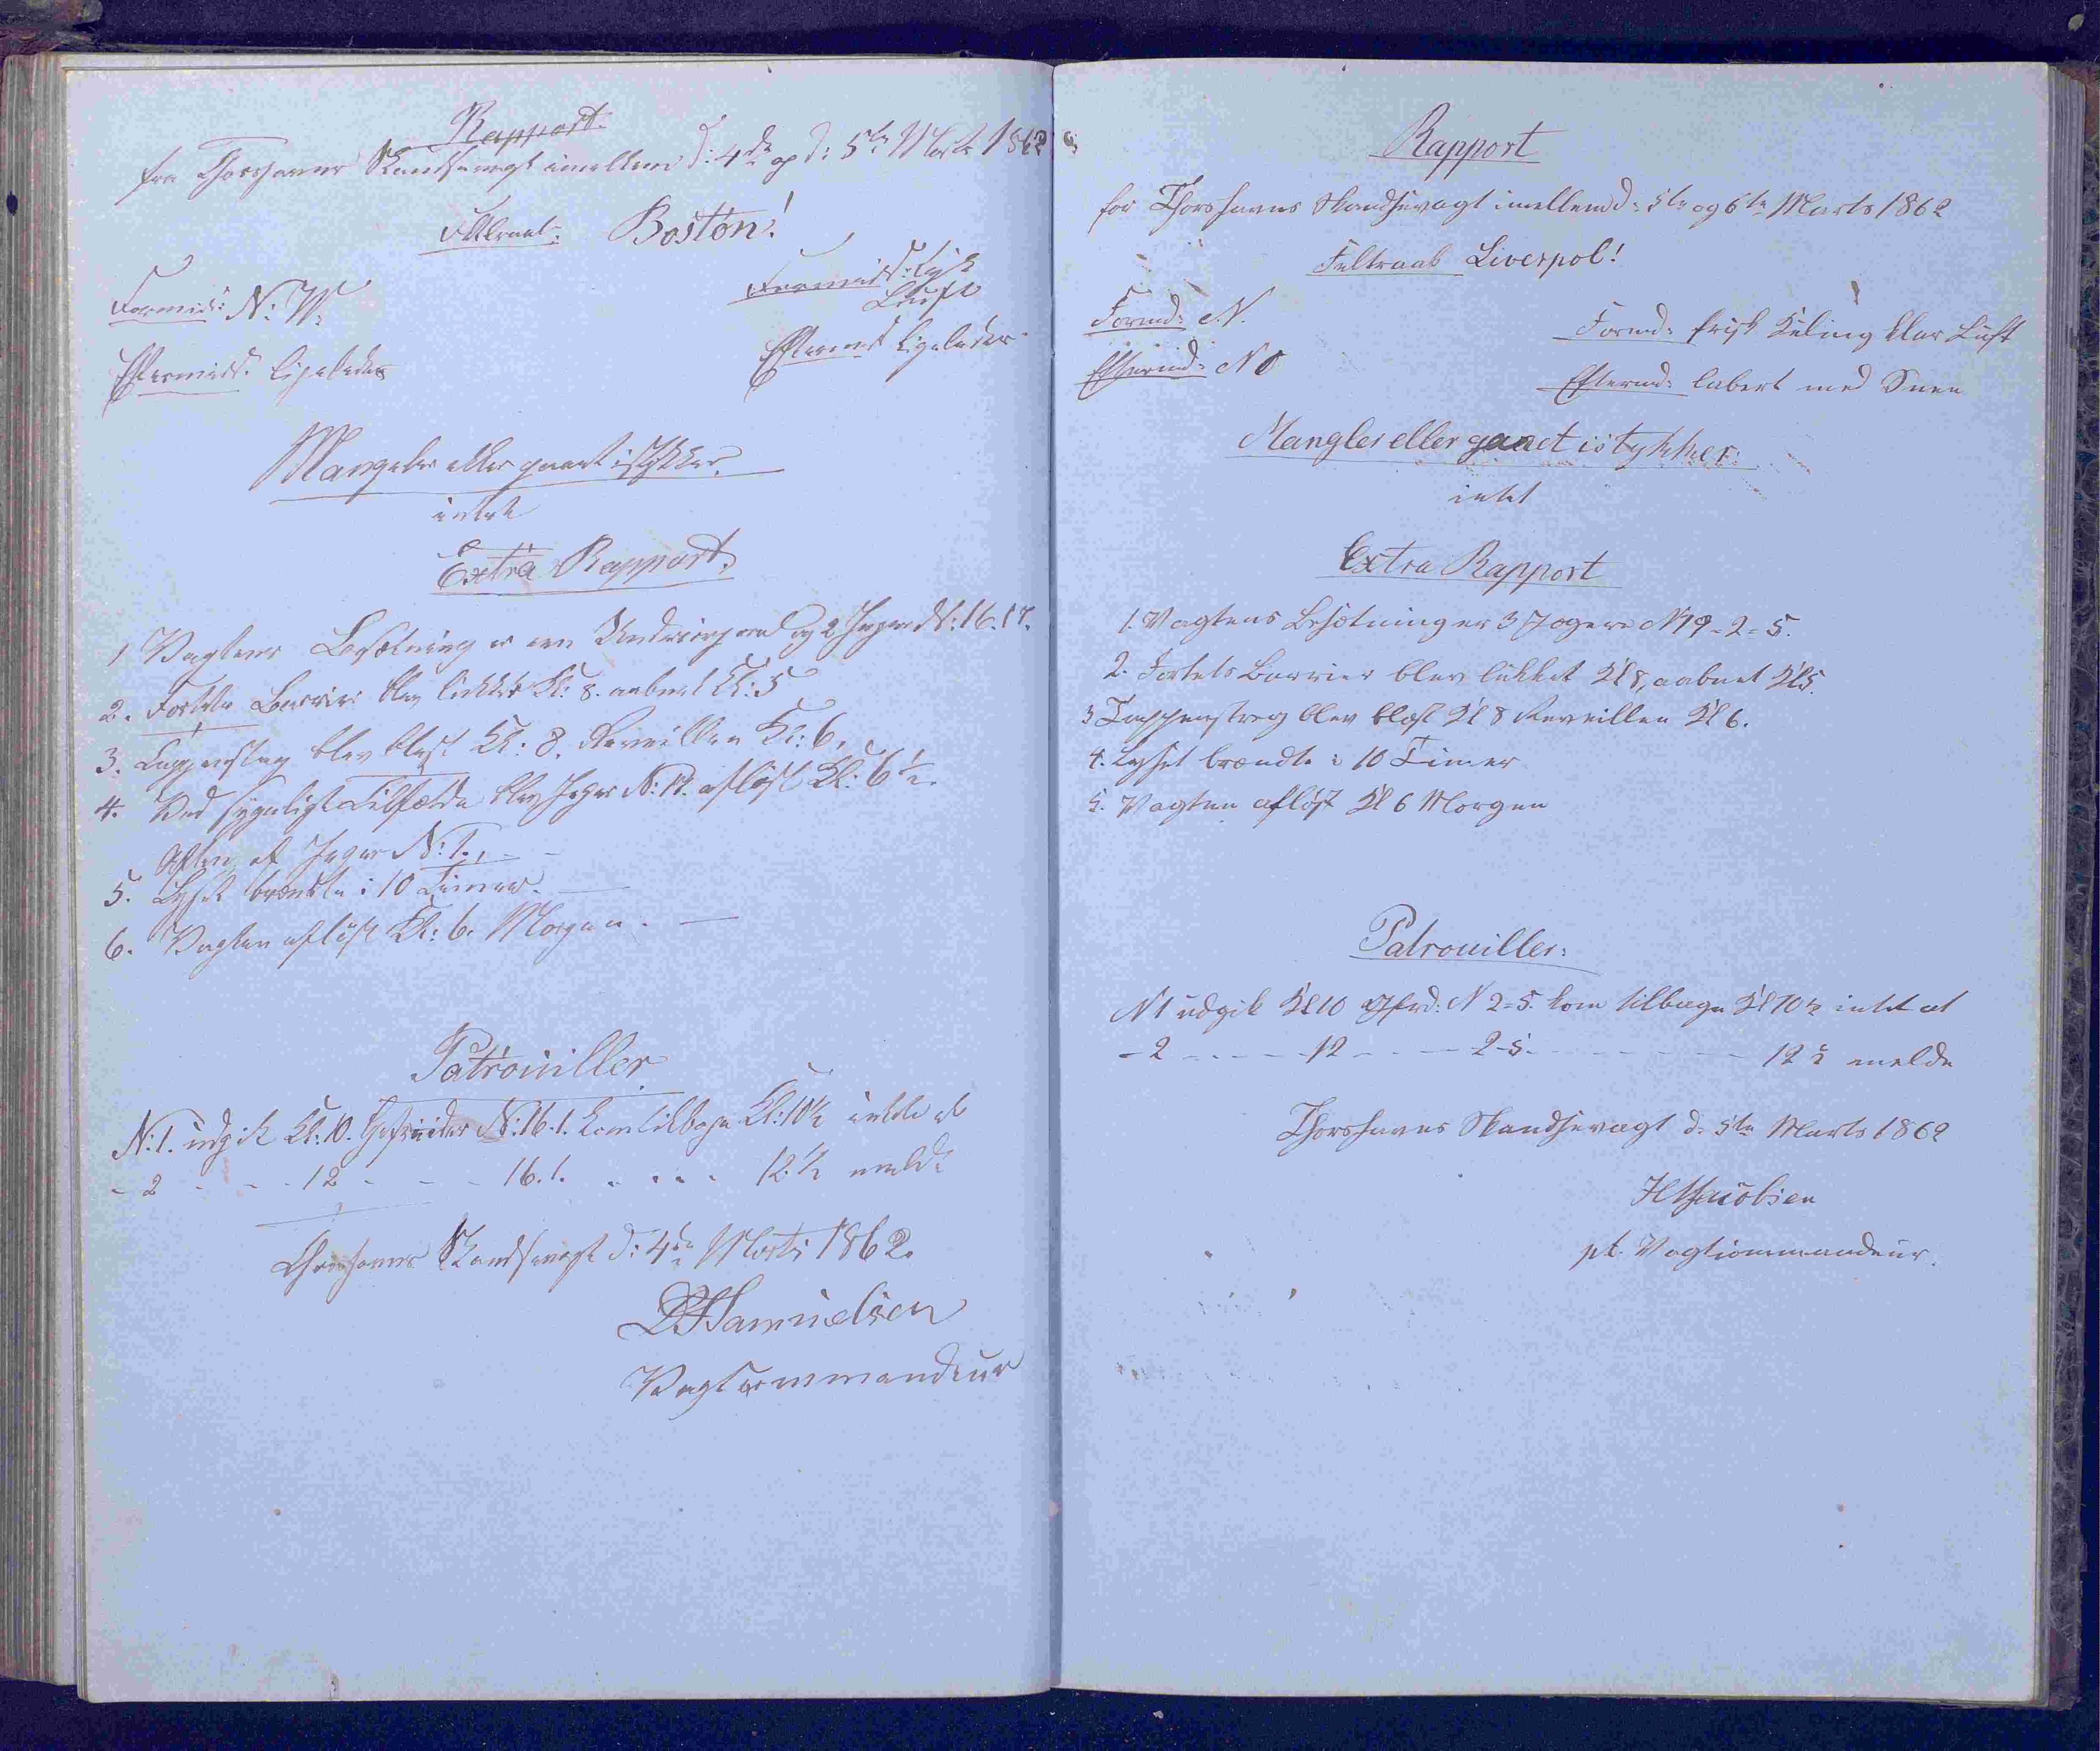 Rapport
fra Thorshavns Skandsevagt imellem d: 4de og d: 5te Marts 1862
Feltraab: Boston!
Formid: N: W:
Formidd: tyk
Luft
Eftermidd: ligeledes
Eftermd ligeledes
Mangler eller gaaet istykker.
intet
Extra Rapport.
1 Vagtens Besætning er en Undercorporal og 2 Jægere N: 16. 17.
2. Fortets Barriere blev lukket Kl: 8. aabnet Kl: 5
3. Tappenstreg blev blæst Kl: 8. Reveillen Kl: 6.
4. Ved sygeligt Tilfælde blev Jæger N: 17. afløst Kl: 6½.
Aften af Jæger N: 1.
5. Lyset brændte i 10 Timer.
6. Vagten afløst Kl: 6. Morgen.
Patrouiller
N: 1. udgik Kl: 10. Gefreider N: 16. 1. kom tilbage Kl: 10½ intet at
- 2 - - - 12 - - - 16. 1. - - - - 12½ melde
Thorshavns Skandsevagt d: 4de Marts 1862.
Samuelsen
Vagtcommandeur
Rapport
for Thorshavns Skandsevagt imellem d: 5te og 6te Marts 1862
Feltraab Liverpol!
Formd: N.
Formd: frisk Kuling klar Luft
Eftermd: NO
Eftermd: labert med Snee
Mangler eller gaaet istykker:
intet
Extra Rapport
1. Vagtens Besætning er 3 Jægere N 19 = 2 = 5.
2. Fortets Barrier blev lukket Kl 8, aabnet Kl 5.
3 Tappenstreg blev blæst Kl 8 Reveillen Kl 6.
4. Lyset brændte i 10 Timer
5. Vagten afløst Kl 6 Morgen
Patrouiller:
N 1 udgik Kl 10 Gfrd: N 2=5. kom tilbage Kl 10½ intet at
- 2 - - - - 12 - - - 2-5. - - - - - - 12½ melde
Thorshavns Skandsevagt d: 5te Marts 1862
Jacobsen
pt. Vagtcommandeur.